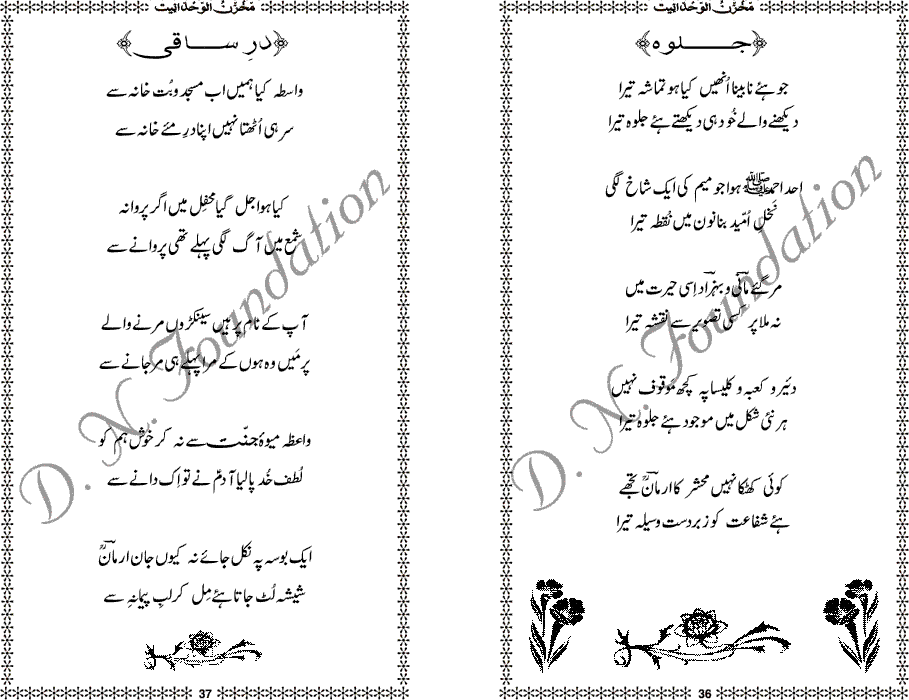 مَخْزَنُ الْوَحْدَانِیت
جلوہ
جو ہئے نابینا اُنھیں کیا ہو تماشہ تیرا
دیکھنے والے خُود ہی دیکھتے ہئے جلوہ تیرا
احد احمدﷺ ہوا جو میم کی ایک شاخ لگی
نخلِ اُمّید بنا نون میں نُقطہ تیرا
مر گئے مانی و بہزاد اِسی حیرت میں
نہ ملا پر کسی تصویر سے نقشہ تیرا
دئیر و کعبہ و کلیسا پہ کچھ موقوف نہیں
ہر نئی شکل میں موجود ہئے جلوۂ تیرا
کوئی کھٹکا نہیں محشر کا ارمانؔ تجھے
ہئے شفاعت کو زبردست وسیلہ تیرا
36
مَخْزَنُ الْوَحْدَانِیت
درِ ساقی
واسطہ کیا ہمیں اب مسجد و بُت خانہ سے
سر ہی اُٹھتا نہیں اپنا درِ مئے خانہ سے
کیا ہوا جل گیا محفِل میں اگر پروانہ
شمع میں آگ لگی پہلے تھی پروانے سے
آپ کے نام پر ہیں سینکڑوں مرنے والے
پر مَیں وہ ہوں کے مرا پہلے ہی مر جانے سے
واعظہ میوۂ جنّت سے نہ کر خُوش ہم کو
لُطف خُد پا لیا آدمؑ نے تو اِک دانے سے
ایک بوسہ پہ نکل جائے نہ کیوں جان ارمانؔ
شیشہ لُٹ جاتا ہئے مِل کر لبِ پیمانہِ سے
37
D. N. Foundation
D. N. Foundation